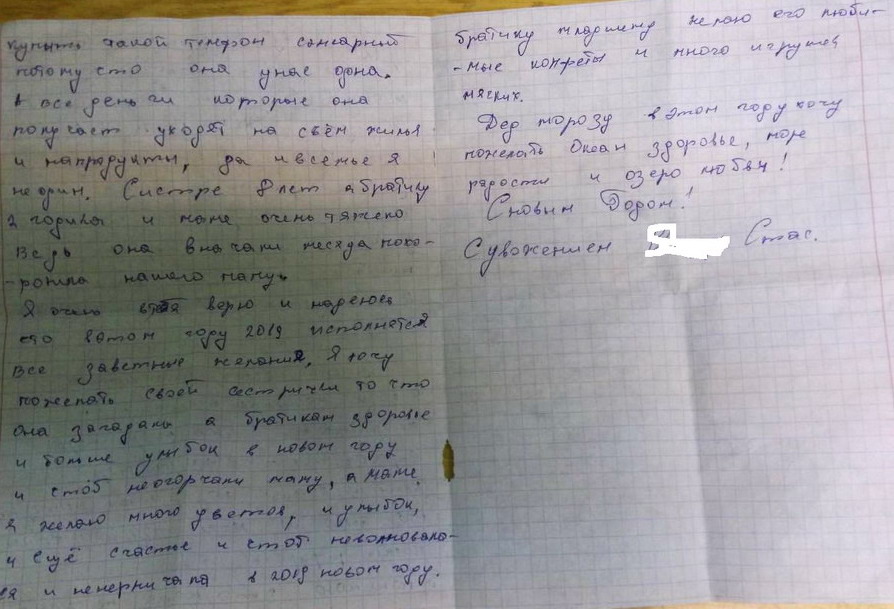 купить такой телефон сенсарный
потому сто она унас одна.
А все деньги которые она
получает уходят на сьём жилья
и напрадукты, да ивсемье я
неодин. Систре 8 лет абратику
2 годика и маме очень тяжело
Ведь она вначали месяца похо-
-ронила нашего папу.
Я очень верю и надеюсь
сто вэтом году 2019 исполнется
Все заветные желания, Я хочу
пожелать своей сестрички то что
она загадала а братикам здоровье
и больше улыбок в новом году
и стоб неогорчали маму, а маме
я желаю много цветов, и улыбок,
и ещё счастье и стоб неволновала-
ся и неневничала в 2019 новом году.
братику младшему желаю его люби-
-мые конфеты и много игрушек
мяхких.
Дед морозу вэтом году хочу
пожелать Океан здоровье, море
радости и озеро любви!
Сновым Годом!
Суважением Стас.